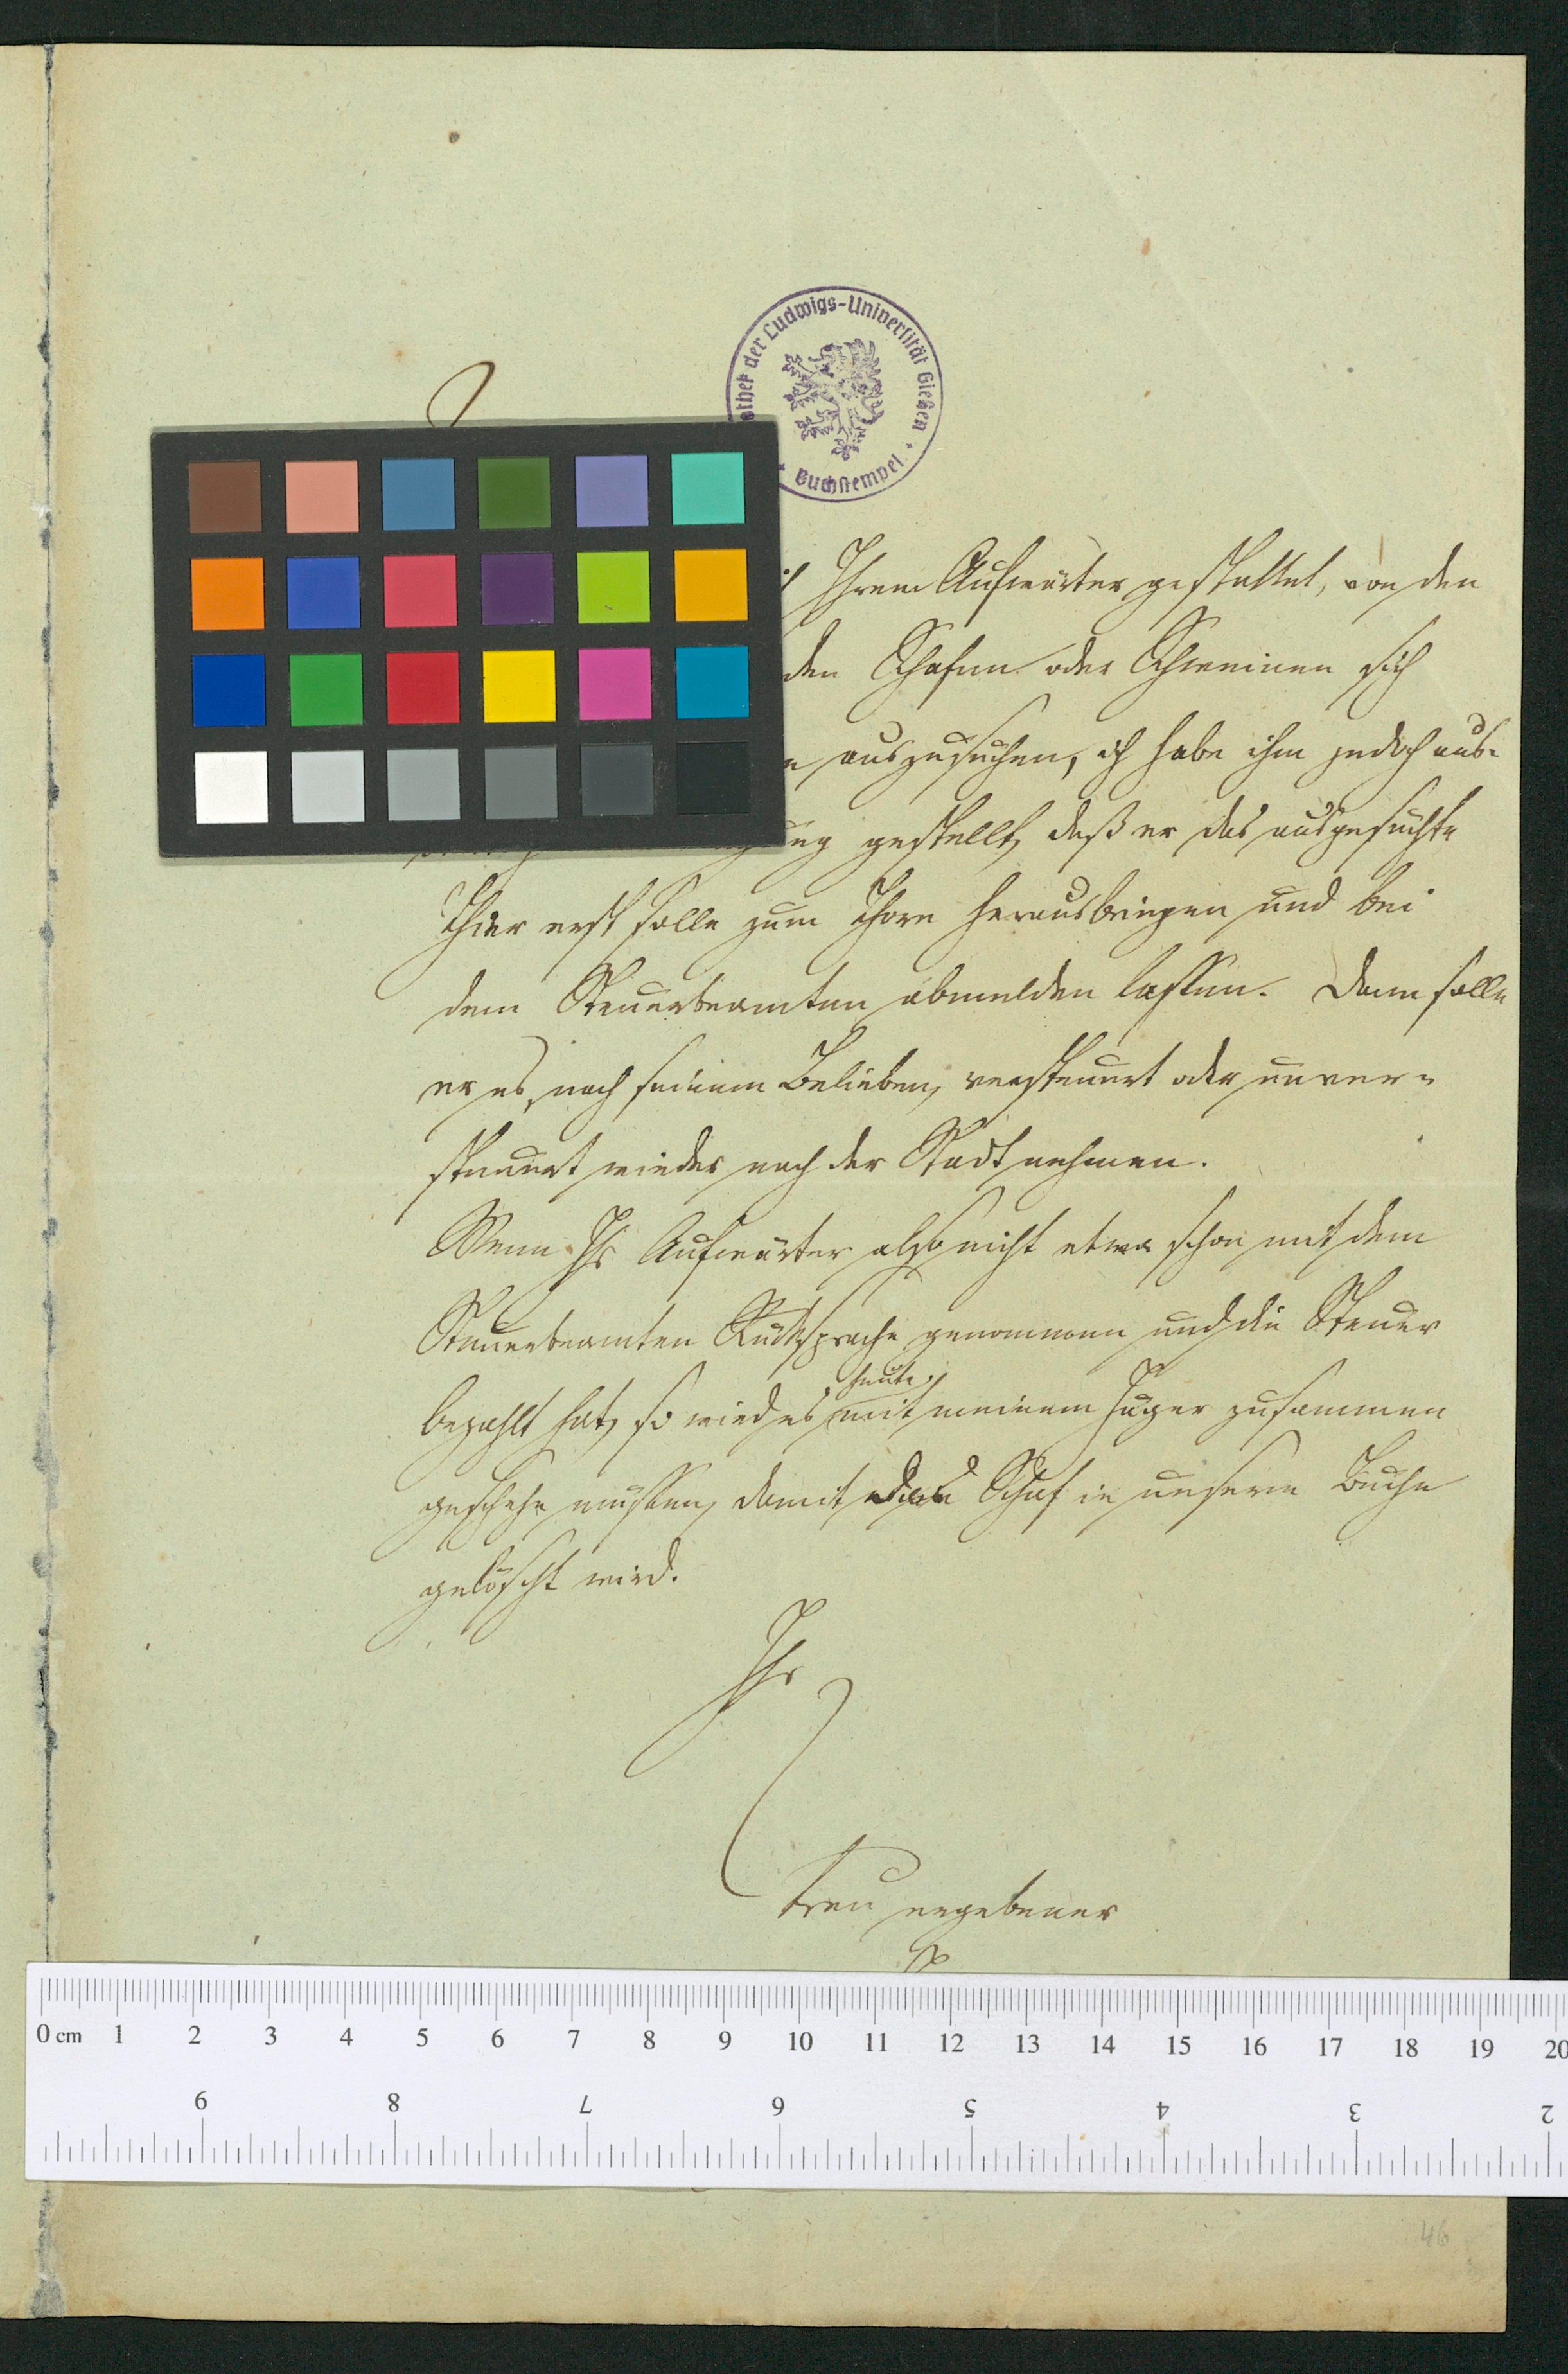 othek der Ludwigs-Universität Gießen
Buchstempel
Ihrem Aufwärter gestattet, von den
den Schafen oder Schweinen sich
auszusuchen, ich habe ihm jedoch aus-
gestellt, daß er das ausgesuchte
Thier erst solle zum Thore herausbringen und bei
dem Steuerbeamten abmelden lassen. Dann solle
er es, nach seinem Belieben, versteuert oder unver-
steuert wieder nach der Stadt nehmen.
Wenn Ihr Aufwärter also nicht etwa schon mit dem
Steuerbeamten Rücksprache genommen und die Steuer
heute
bezahlt hat, so wird es mit meinem Jäger zusammen
geschehn müssen, damit das Schaf in unserm Buche
gelöscht wird.
Ihr
treu ergebener
0 cm 1 2 3 4 5 6 7 8 9 10 11 12 13 14 15 16 17 18 19 20
9 8 7 6 5 4 3 2
46